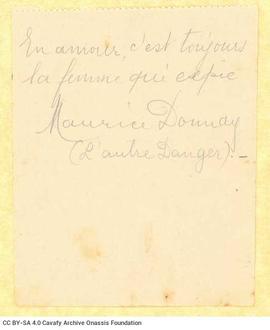 En amour, c'est toujours
la femme qui expie
Maurice Donnay
(L'autre Danger). _
CC BY-SA 4.0 Cavafy Archive Onassis Foundation